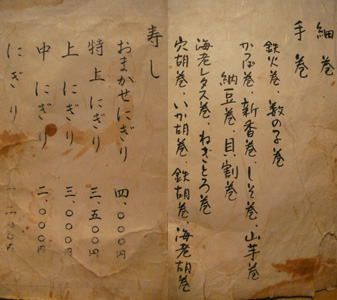 細巻
手巻
鉄火巻、数の子巻
かっぱ巻、新香巻、しそ巻、山芋巻
納豆巻、貝割巻
海老レタス巻、ねぎとろ巻
穴胡巻、いか胡巻、鉄胡巻、海老胡巻
寿し
おまかせにぎり 四、〇〇〇円
特上にぎり 三、五〇〇円
上にぎり 三、〇〇〇円
中にぎり 二、〇〇〇円
にぎり